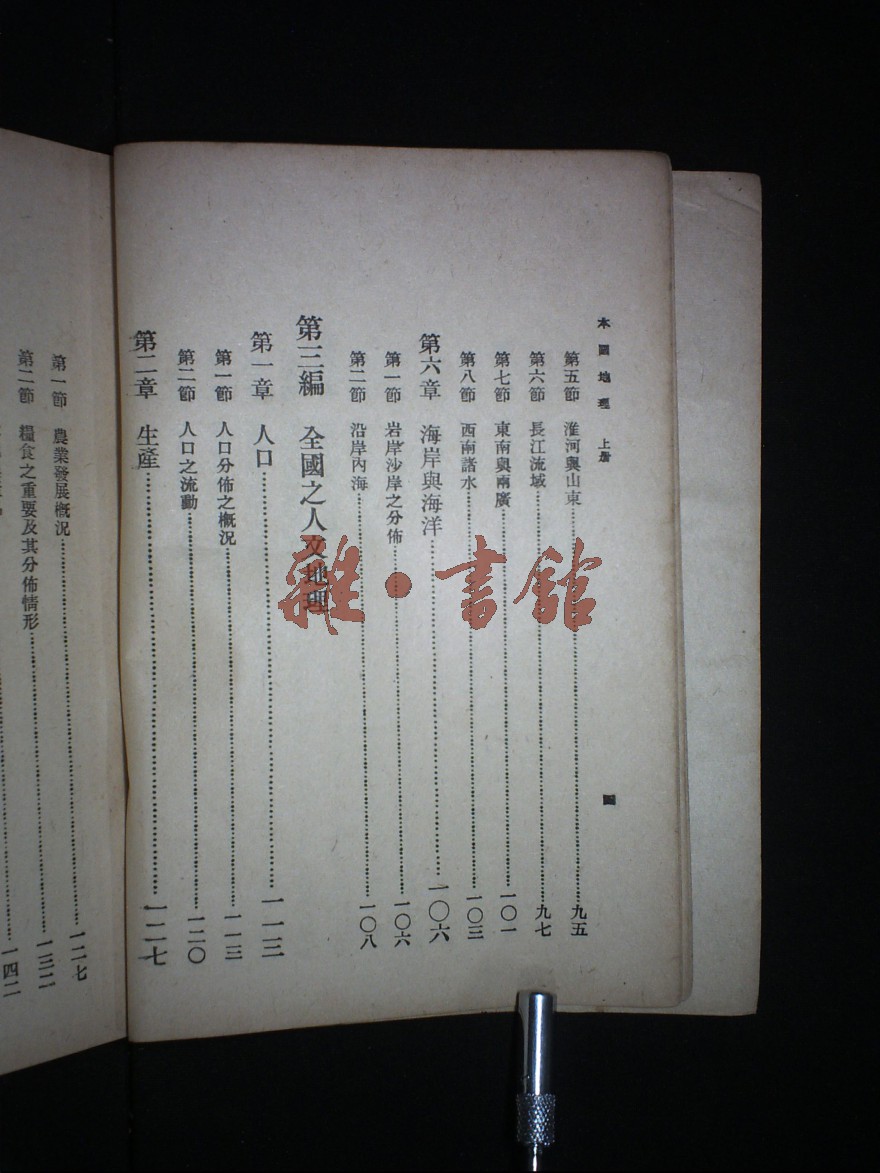 本國地理 上册
四
第五節 淮河與山東……九五
第六節 長江流域……九七
第七節 東南與兩廣……一〇一
第八節 西南諸水……一〇三
第六章 海岸與海洋……一〇六
第一節 岩岸沙岸之分佈……一〇六
第二節 沿岸內海……一〇八
第三編 全國之人文地理
第一章 人口……一一三
第一節 人口分佈之概況……一一三
第二節 人口之流動……一二〇
第二章 生產……一二七
第一節 農業發展概況……一二七
第二節 糧食之重要及其分佈情形……一三二
一四二
雜·書館